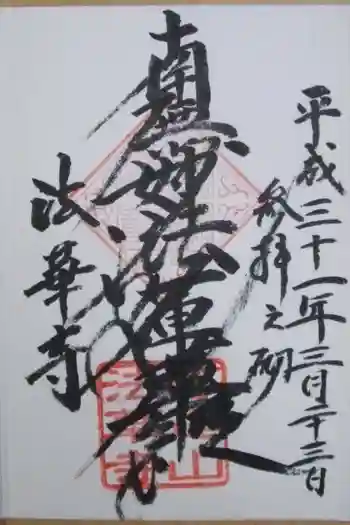 平成三十一年三月二十三日
参拝之砌
南無妙法蓮華経
法華寺